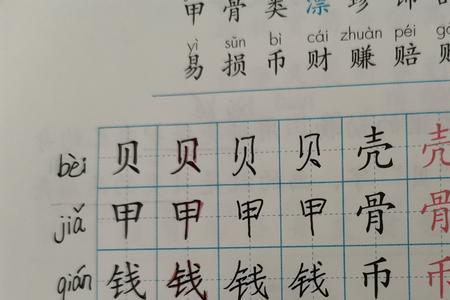 甲 骨 类 漂 珍 饰
yì sǔn bì cái zhuàn péi
易 损 币 财 赚 赔
bèi 贝 贝 贝 贝 壳 壳
jiǎ 甲 甲 甲 甲 骨 骨
qián 钱 钱 钱 钱 币 币